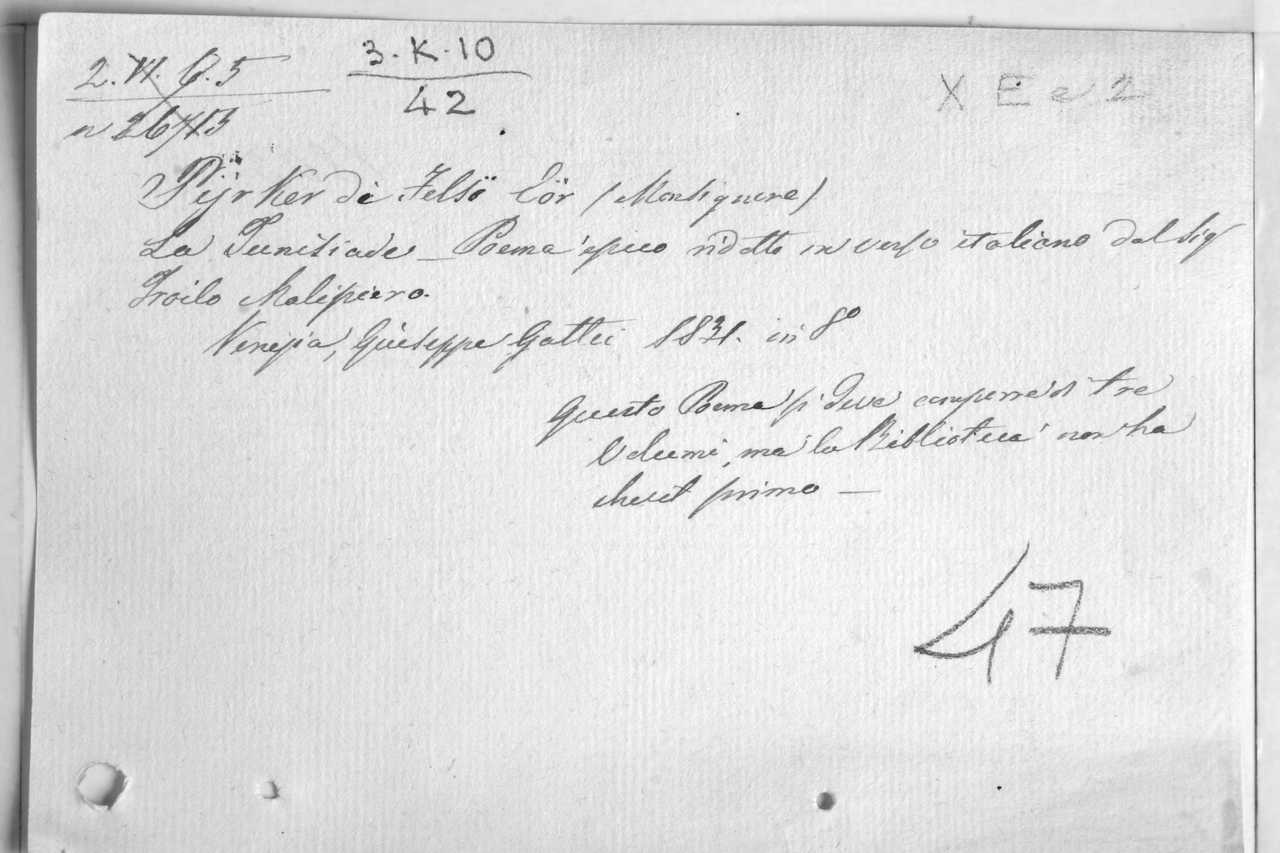 3·K·10
42
X E e 2
Pÿrker di Felsö Eör (Monsignore)
La Tunisiade _ Poema epico ridotto in verso italiano dal Sigr
Troilo Malipiero.
Venezia, Giuseppe Gattei 1831. in 8º
Questo Poema si deve comporre di tre
Volumi, ma la Biblioteca non ha
che il primo —
47